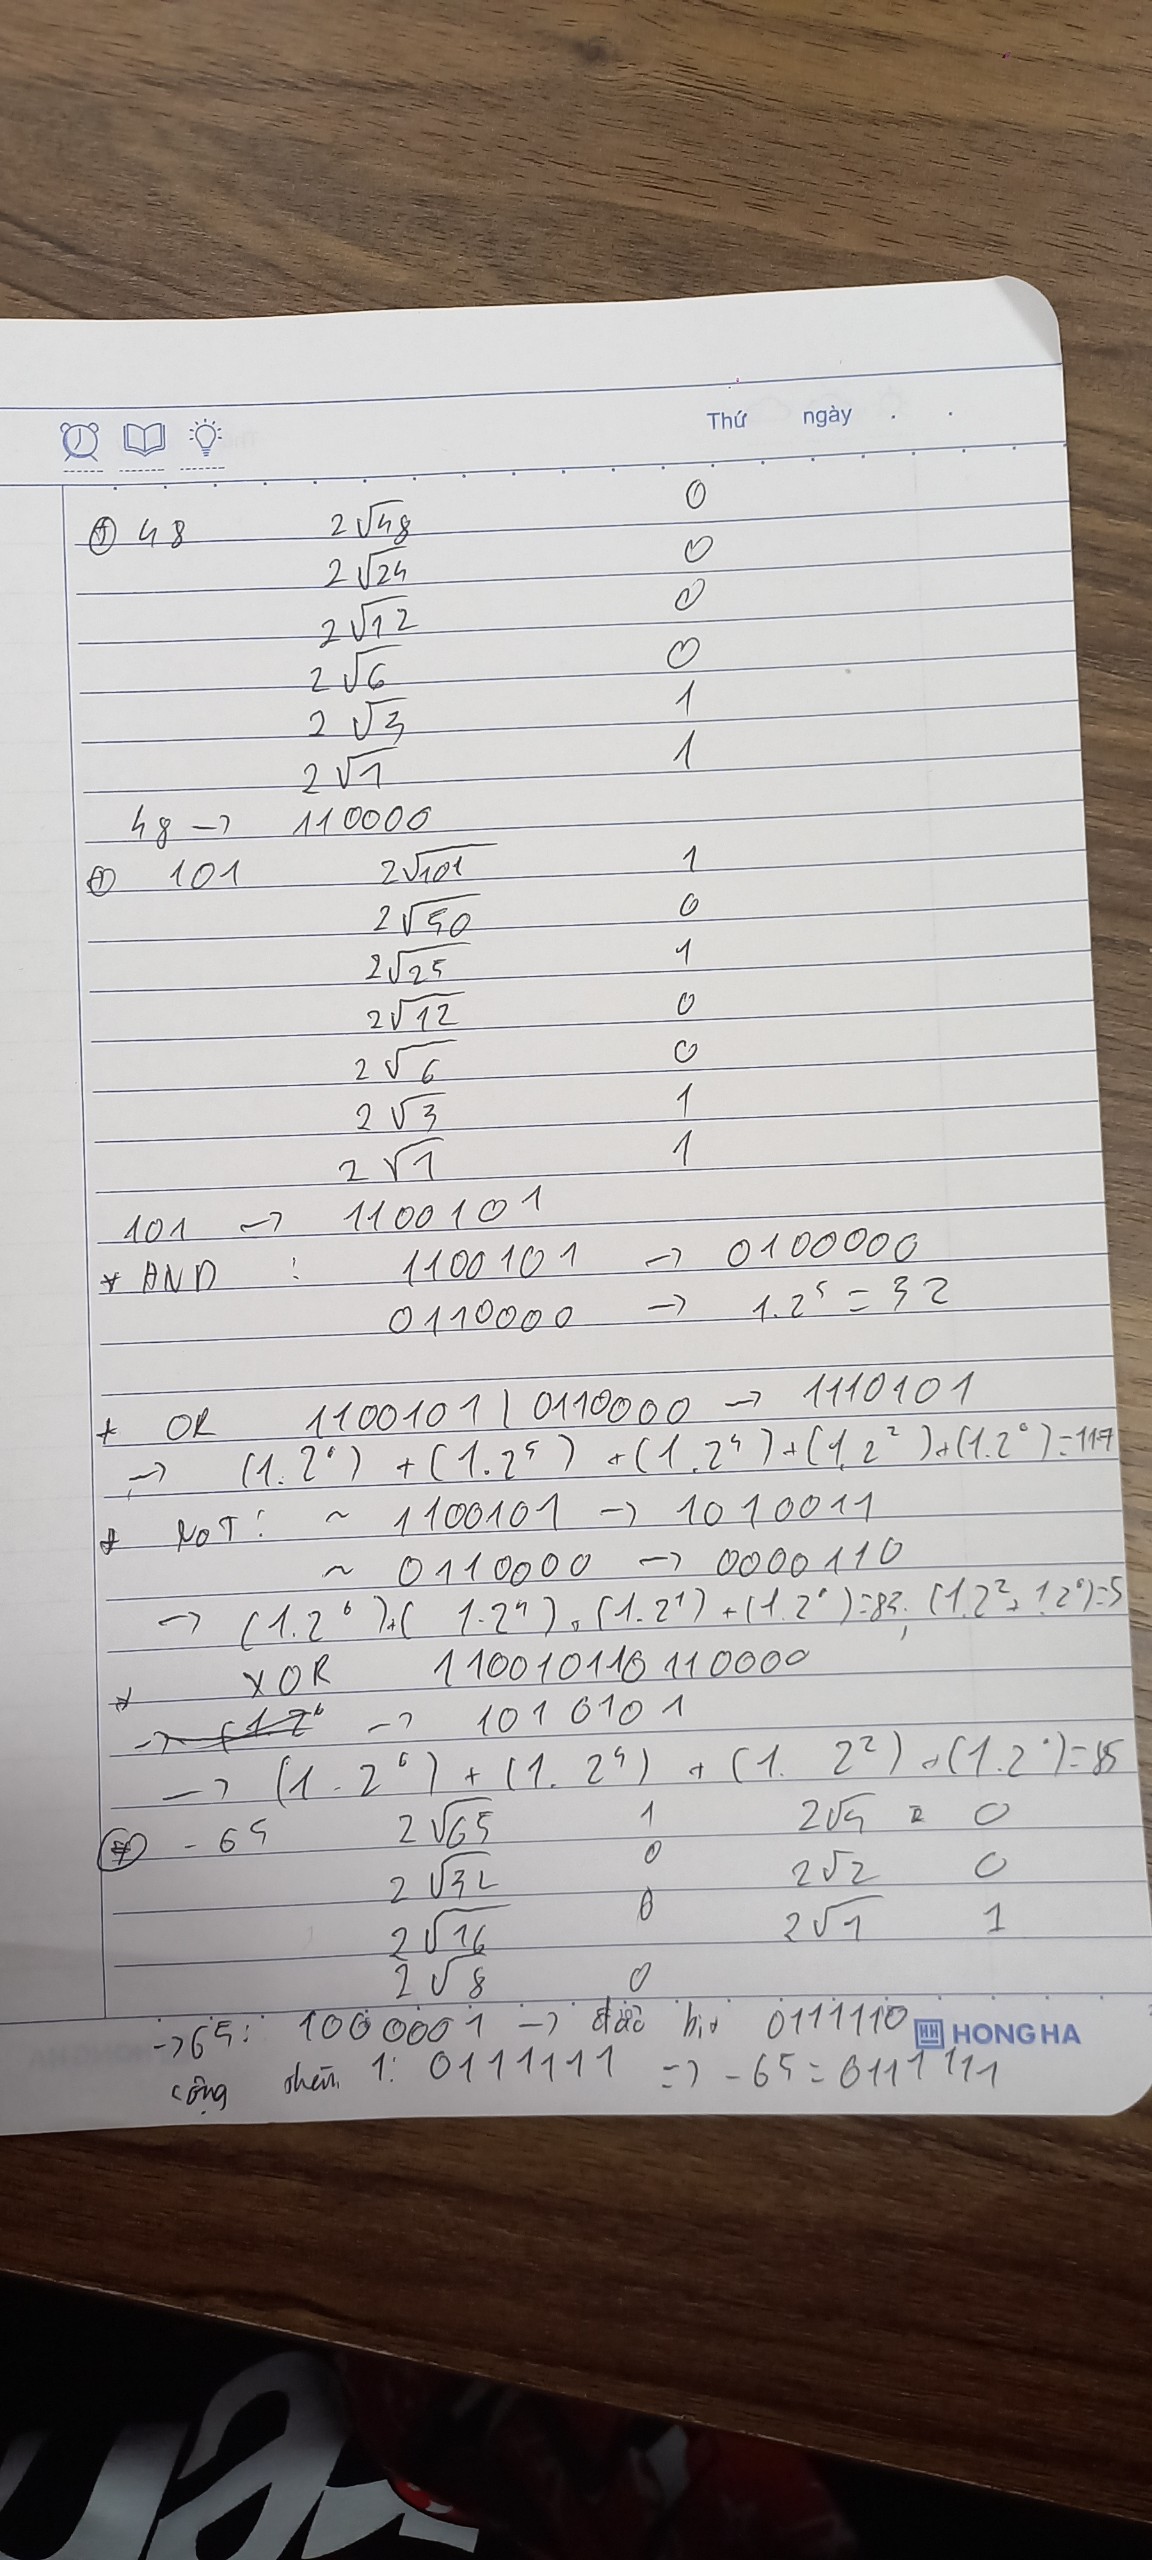 Thứ ngày . .
+ 48 2√48 0
2√24 0
2√12 0
2√6 0
2√3 1
2√1 1
48 -> 110000
+ 101 2√101 1
2√50 0
2√25 1
2√12 0
2√6 0
2√3 1
2√1 1
101 -> 1100101
* AND : 1100101 -> 0100000
0110000 -> 1.2⁵ = 32
+ OR 1100101 | 0110000 -> 1110101
-> (1.2⁶) + (1.2⁵) + (1.2⁴) + (1.2²) + (1.2⁰) = 117
* NOT: ~ 1100101 -> 1010011
~ 0110000 -> 0000110
-> (1.2⁶) + (1.2⁴) + (1.2¹) + (1.2⁰) = 83, (1.2² + 1.2⁰) = 5
* XOR 110010110110000
-> 1010101
-> (1.2⁶) + (1.2⁴) + (1.2²) + (1.2⁰) = 85
* - 65 2√65 1 2√4 0
2√32 0 2√2 0
2√16 0 2√1 1
2√8 0
-> 65: 1000001 -> đảo bit 0111110
cộng thêm 1: 0111111 => -65 = 0111111
HONG HA